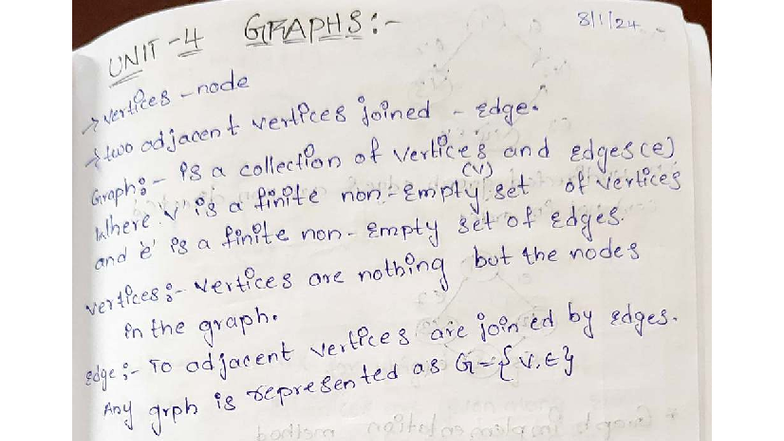 UNIT-4 GRAPHS:- 8/1/24
→ vertices - node
→ two adjacent vertices joined - edge.
Graph:- is a collection of vertices and edges(e)
(v)
Where 'v' is a finite non-empty set of vertices
and 'e' is a finite non-empty set of edges.
vertices:- vertices are nothing but the nodes
in the graph.
edge:- To adjacent vertices are joined by edges.
Any grph is represented as G={V,E}